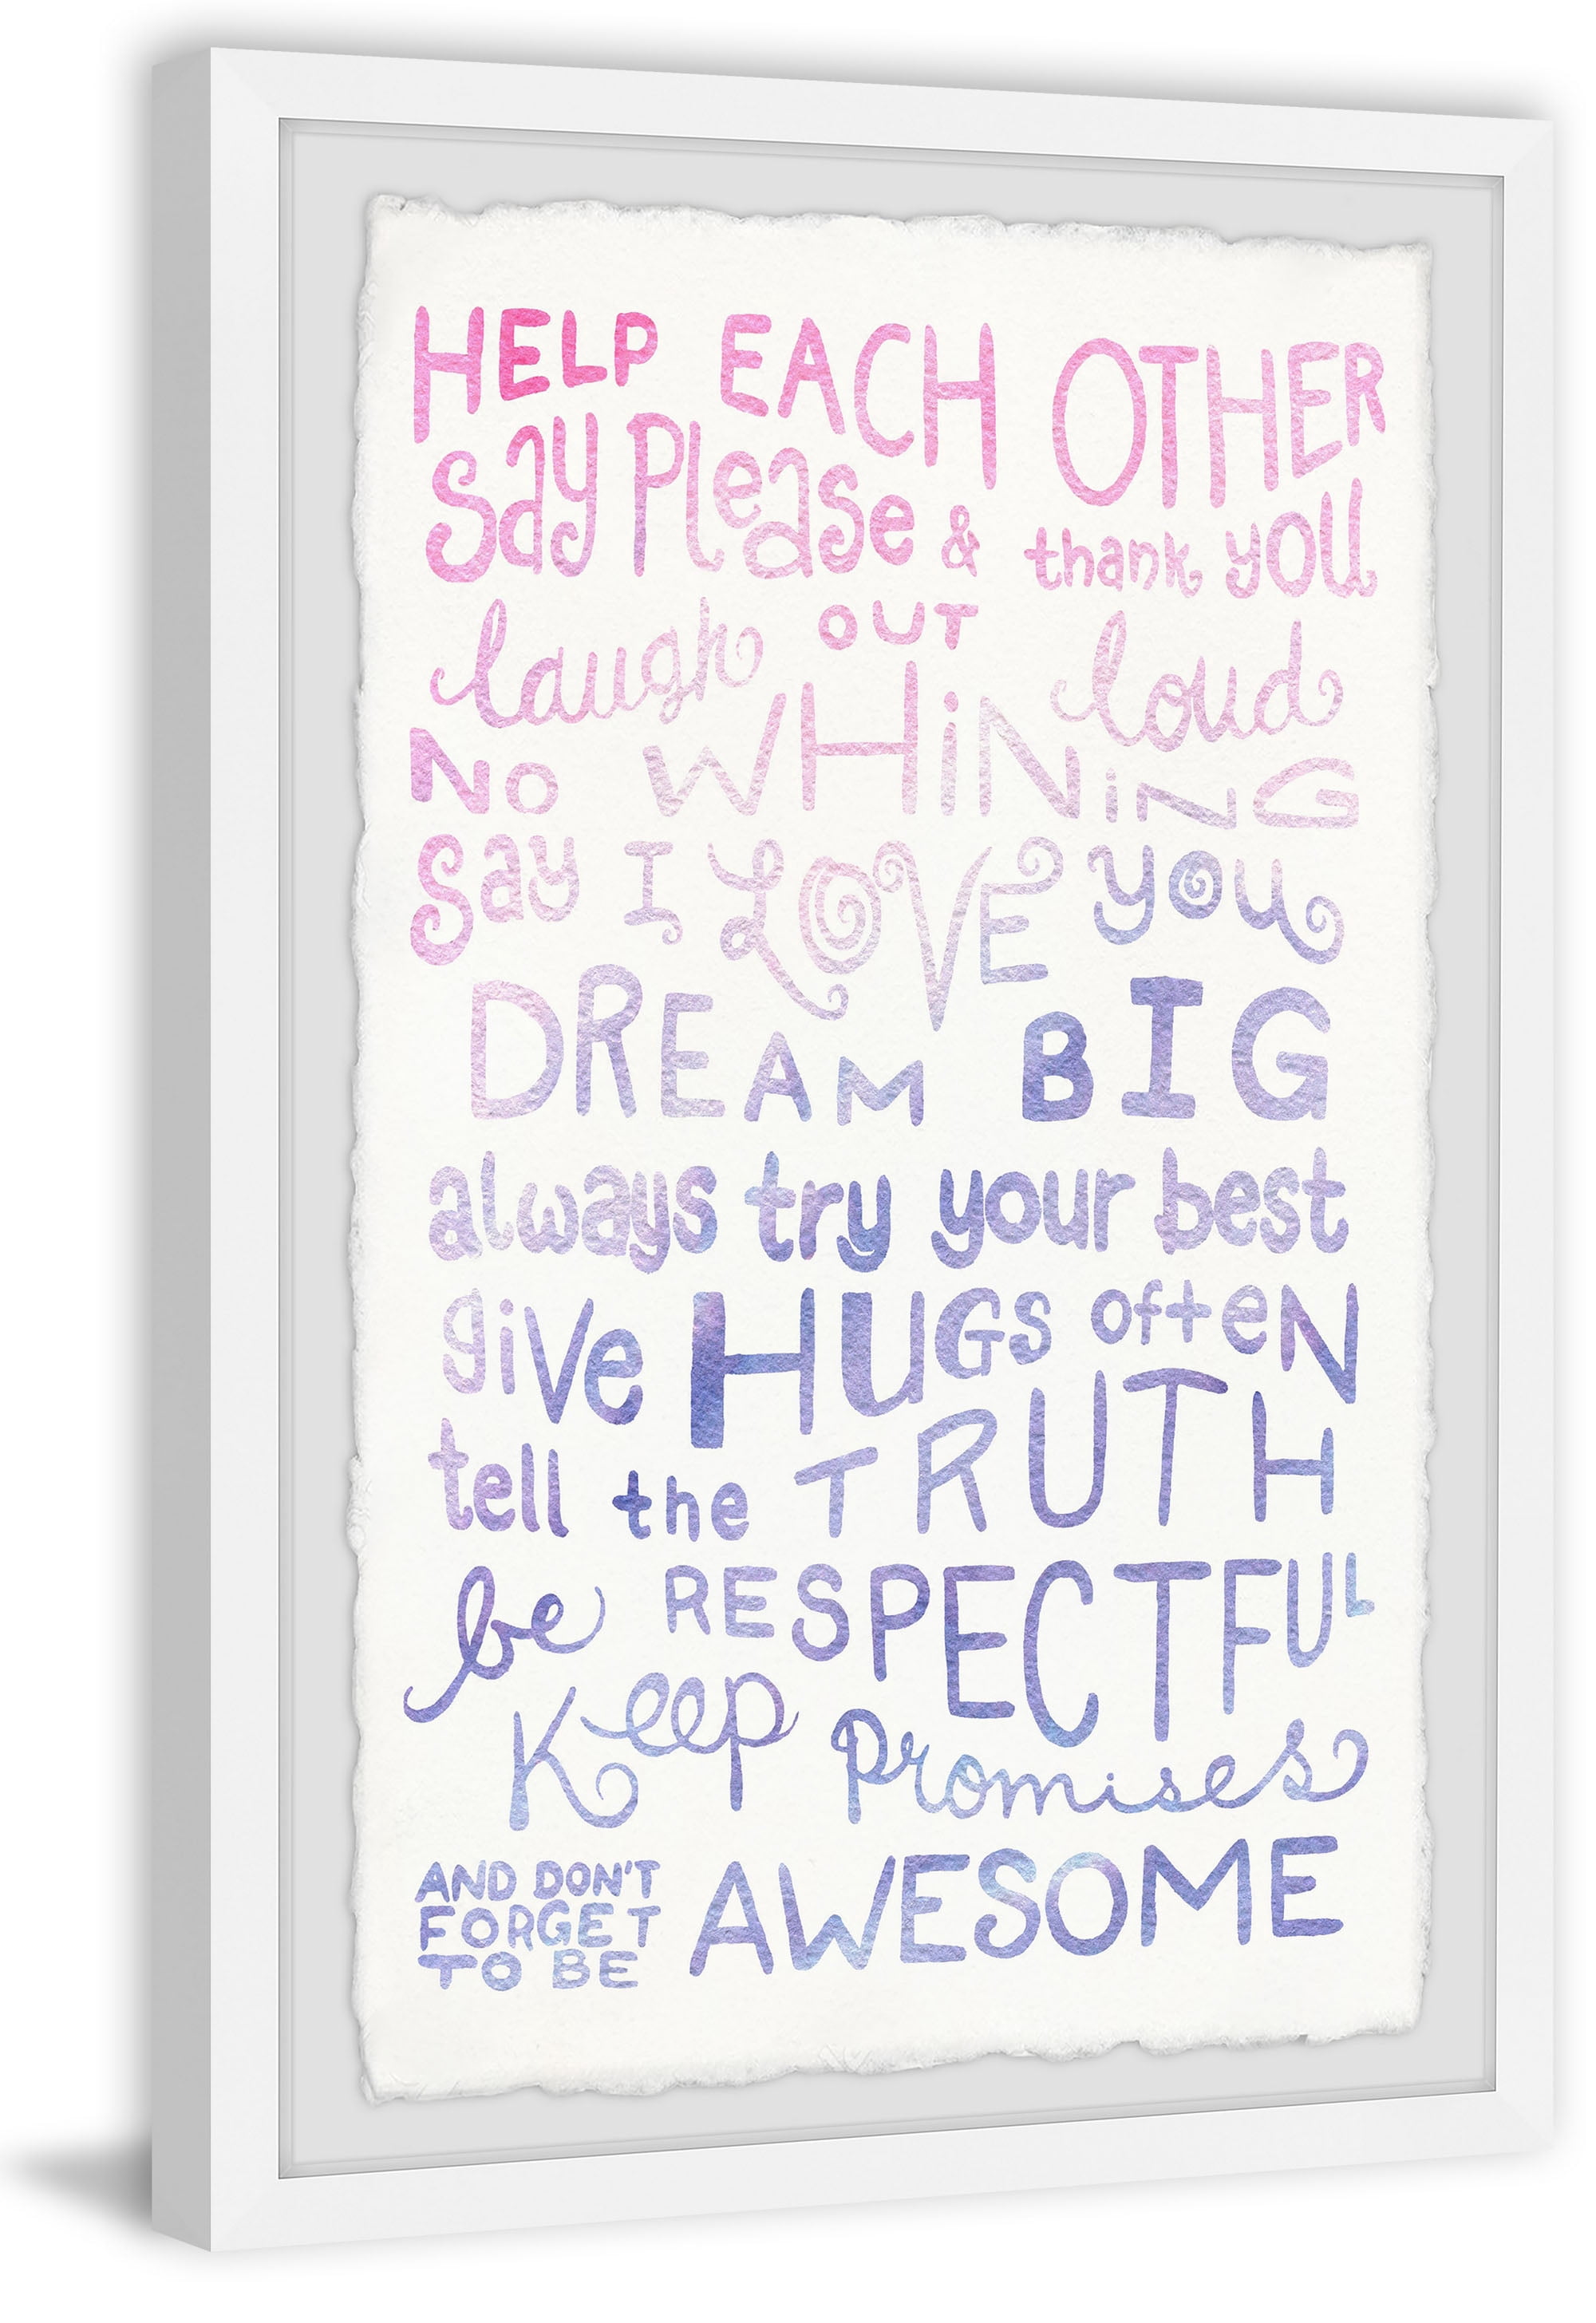 HELP EACH OTHER
say Please & thank you
laugh OUT loud
No WHiNiNG
Say I LOVE you
DREAM BIG
always try your best
giVe HUGS often
tell the TRUTH
be RESPECTFUL
Keep Promises
AND DON'T
FORGET
TO BE AWESOME